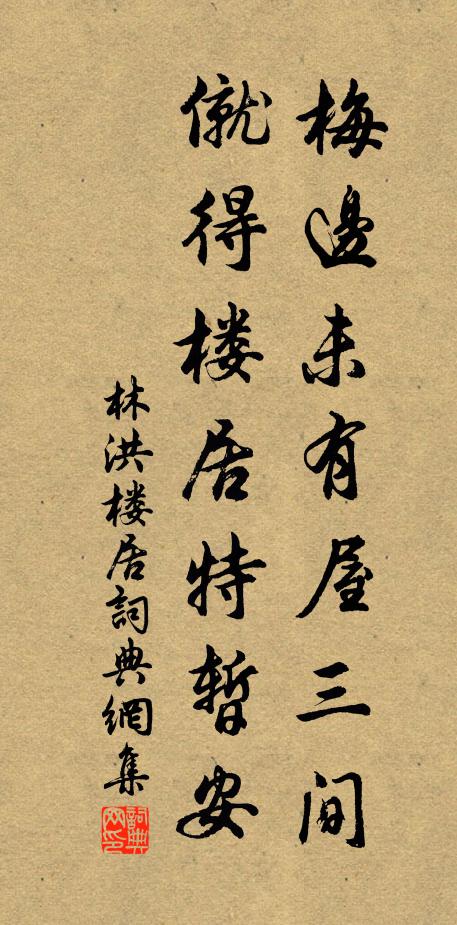 梅邊未有屋三间
僦得楼居特暫安
林洪楼居詞典網集
詞典网印